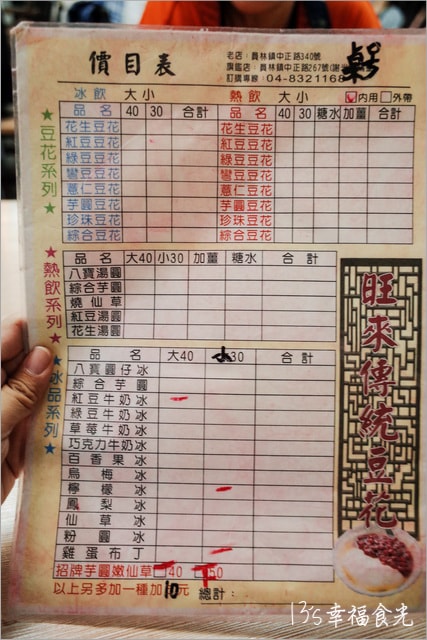 價目表
老店：員林鎮中正路340號
旗艦店：員林鎮中正路267號
訂購專線：04-8321168
桌號
冰飲 大 小 熱飲 大 小 內用 外帶
品名 40 30 合計 品名 40 30 糖水 加薑 合計
豆花系列
花生豆花 花生豆花
紅豆豆花 紅豆豆花
綠豆豆花 綠豆豆花
鸞豆豆花 鸞豆豆花
薏仁豆花 薏仁豆花
芋圓豆花 芋圓豆花
珍珠豆花 珍珠豆花
綜合豆花 綜合豆花
熱飲系列
品名 大40 小30 加薑 糖水 合計
八寶湯圓
綜合芋圓
燒仙草
紅豆湯圓
花生湯圓
冰品系列
品名 大40 小30 合計
八寶圓仔冰
綜合芋圓
紅豆牛奶冰
綠豆牛奶冰
草莓牛奶冰
巧克力牛奶冰
百香果冰
烏梅冰
檸檬冰
鳳梨冰
仙草冰
粉圓冰
雞蛋布丁
招牌芋圓嫩仙草 40 50
以上另多加一種加10元 總計：
旺來傳統豆花
13's幸福食光